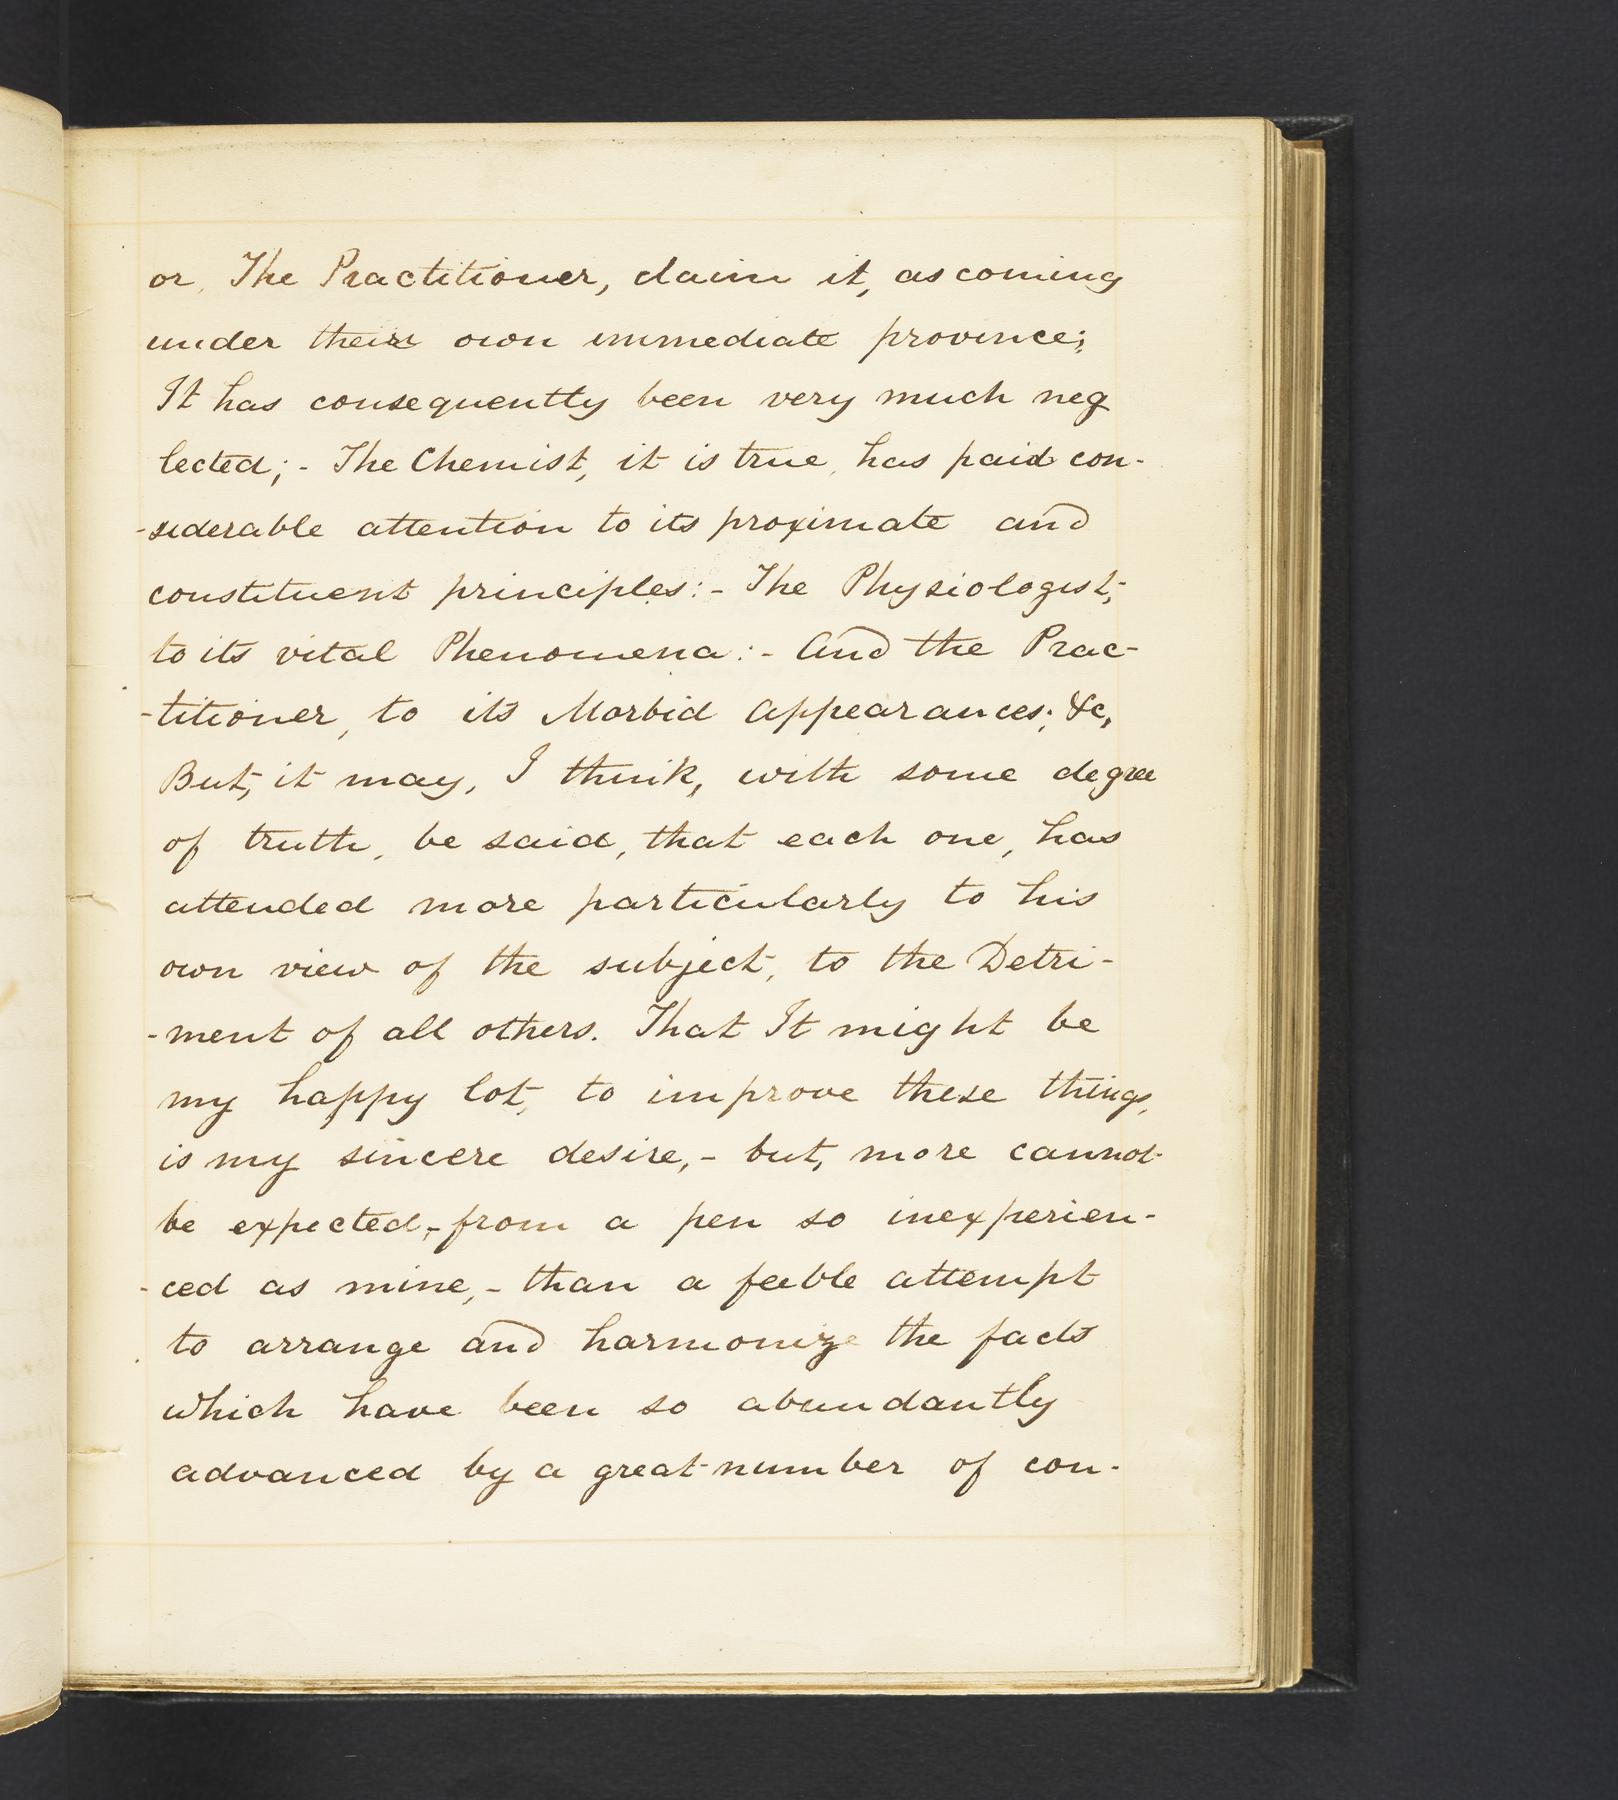 or, The Practitioner, claim it, as coming
under their own immediate province;
It has consequently been very much neg
lected; - The Chemist, it is true, has paid con-
-siderable attention to its proximate and
constituent principles: - The Physiologist,
to its vital Phenomena: - And the Prac-
-titioner, to its Morbid appearances; &c,
But, it may, I think, with some degree
of truth, be said, that each one, has
attended more particularly to his
own view of the subject, to the Detri-
-ment of all others. That It might be
my happy lot, to improve these things,
is my sincere desire, - but, more cannot
be expected, - from a pen so inexperien-
-ced as mine, - than a feeble attempt
to arrange and harmonize the facts
which have been so abundantly
advanced by a great number of con-